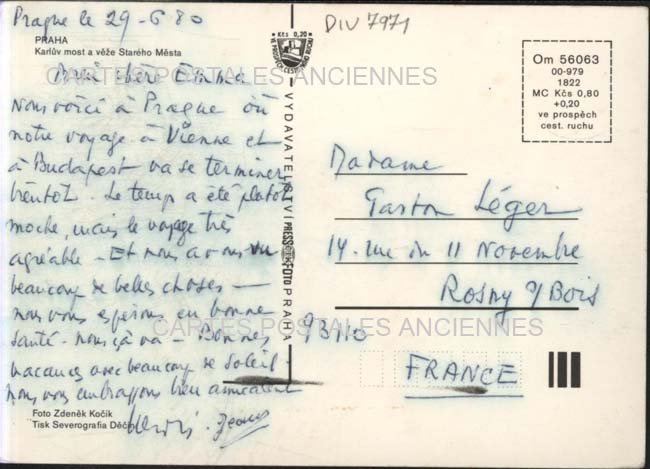 Prague le 29-6 80
PRAHA
Karlův most a věže Starého Města
chère Emma
Nous voici à Prague où
notre voyage à Vienne et
à Budapest va se terminer
bientôt. Le temps a été plutôt
moche, mais le voyage très
agréable - Et nous avons vu
beaucoup de belles choses -
nous vous espérons en bonne
santé - nous ça va - Bonnes
vacances avec beaucoup de soleil
nous vous embrassons bien amicalement
Foto Zdeněk Kočík
Tisk Severografia Děčín
Kčs 0,20
VE PROSPĚCH CEST. RUCHU
VYDAVATELSTVÍ PRESSFOTO PRAHA
DIV 7971
Om 56063
00-979
1822
MC Kčs 0,80
+0,20
ve prospěch
cest. ruchu
Madame
Gaston Léger
14. rue du 11 Novembre
Rosny s/Bois
93110
FRANCE
CARTES POSTALES ANCIENNES
CARTES POSTALES ANCIENNES